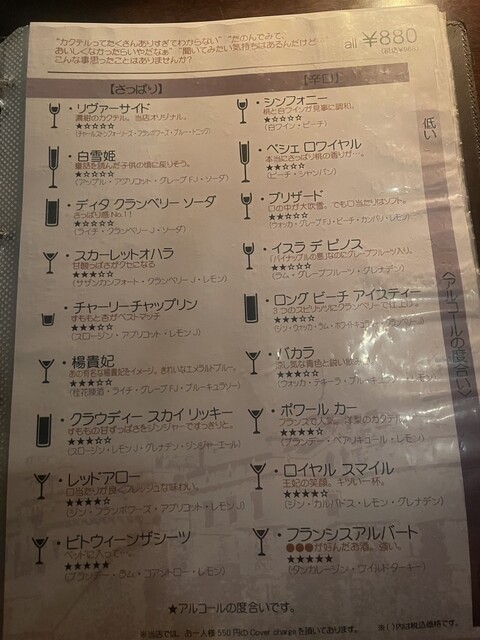 "カクテルってたくさんありすぎてわからない" "たのんでみて、
おいしくなかったらいやだなぁ" "聞いてみたい気持ちはあるんだけど"
こんな事思ったことはありませんか?
all ¥880
【さっぱり】
・リヴァーサイド
濃紺のカクテル。当店オリジナル。
★☆☆☆☆
・白雪姫
童話を読んだ子供の頃に戻りそう。
★☆☆☆☆
(アップル・アプリコット・グレープFJ・ソーダ)
・ディタ クランベリー ソーダ
さっぱり感No.11
★☆☆☆☆
(ライチ・クランベリーJ・ソーダ)
・スカーレットオハラ
甘酸っぱさがクセになる
★★★☆☆
(サザンカンフォート・クランベリーJ・レモン)
・チャーリーチャップリン
すももと杏がベストマッチ
★★★☆☆
(スロージン・アプリコット・レモンJ)
・楊貴妃
あの有名な楊貴妃をイメージ。きれいなエメラルドブルー。
★★★☆☆
(桂花陳酒・ライチ・グレープFJ・ブルーキュラソー)
・クラウディー スカイ リッキー
すももの甘ずっぱさをジンジャーですっきりと。
★★★☆☆
(スロージン・レモンJ・グレナデン・ジンジャーエール)
・レッドアロー
口当たりが良くフレッシュな味わい。
★★★★☆
(ジン・フランボワーズ・アプリコット・レモンJ)
・ビトウィーンザシーツ
ベッドに入って…
★★★★★
(ブランデー・ラム・コアントロー・レモン)
【辛口】
・シンフォニー
桃と白ワインが見事に調和。
★☆☆☆☆
(白ワイン・ピーチ)
・ペシェ ロワイヤル
本当にさっぱり桃の香りが…
★★☆☆☆
(ピーチ・シャンパン)
・ブリザード
口の中が大吹雪。でも口当たりはソフト。
★★☆☆☆
(ウォッカ・グレープFJ・ピーチ・カンパリ・レモン)
・イスラ デ ピノス
「パイナップルの島」なのにグレープフルーツ入り。
★★☆☆☆
(ラム・グレープフルーツ・グレナデン)
・ロング ビーチ アイスティー
3つのスピリッツにクランベリーで仕上げ。
★★★☆☆
・バカラ
★★★☆☆
・ポワール カー
フランスで人気。洋梨のカクテル。
★★★★☆
(ブランデー・ペアリキュール・レモン)
・ロイヤル スマイル
王妃の笑顔。キツい一杯。
★★★★☆
(ジン・カルバドス・レモン・グレナデン)
・フランシスアルバート
●●●が好んだお酒。強い。
★★★★★
(タンカレージン・ワイルドターキー)
低い
〈アルコールの度合い〉
★アルコールの度合いです。
※当店では、お一人様550円のCover chargeを頂いております。
※( )内は税込価格です。